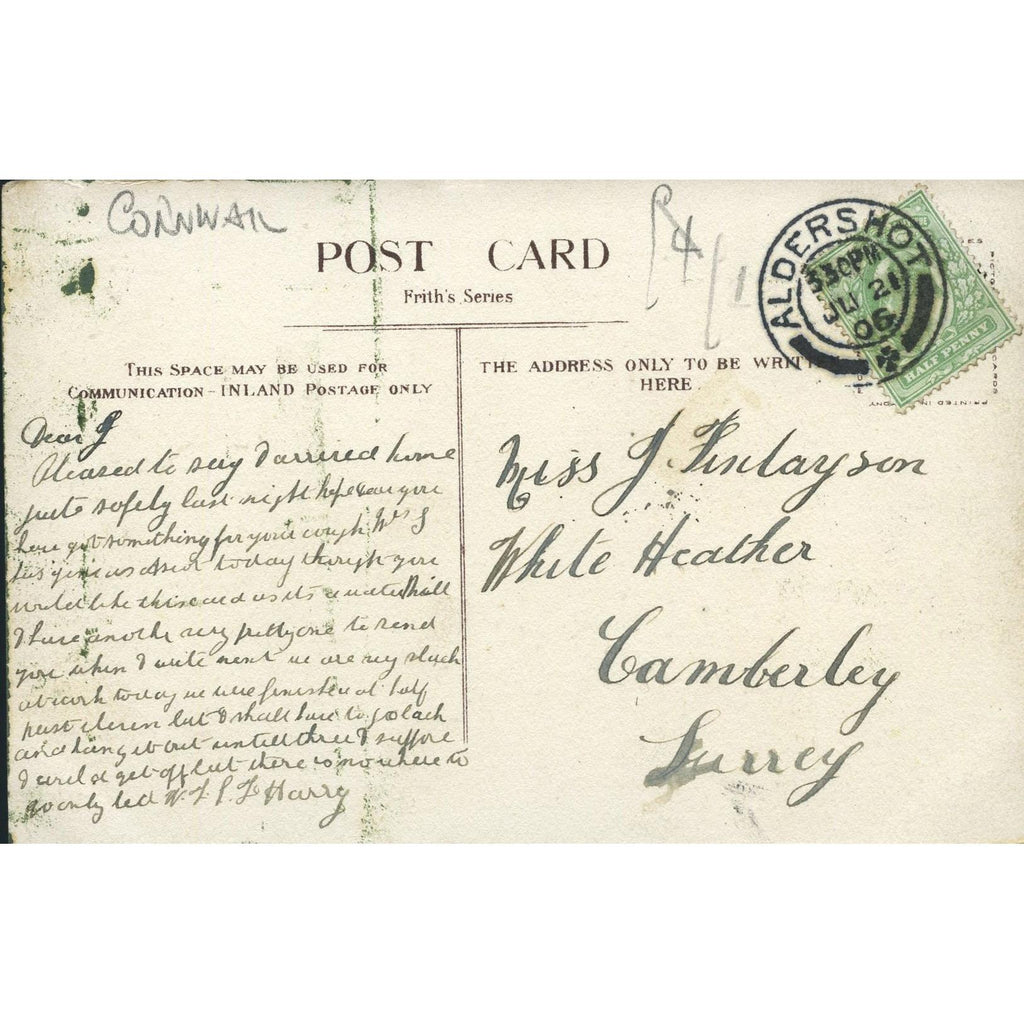 CORNWALL
POST CARD
Frith's Series
THIS SPACE MAY BE USED FOR
COMMUNICATION - INLAND POSTAGE ONLY
THE ADDRESS ONLY TO BE WRITT
HERE
4/1
ALDERSHOT
3 30PM
JU 21
06
HALF PENNY
Dear J
Pleased to say I arrived home
quite safely last night hope you
have got something for your cough Mrs J
has today though you
would like this card as its a
I have another very pretty one to send
you when I write next we are very slack
at work today we were finished at half
past eleven but I shall have to go back
and hang about untill three I suppose
I could get off but there is no where to
go only bed Harry
Miss J. Finlayson
White Heather
Camberley
Surrey